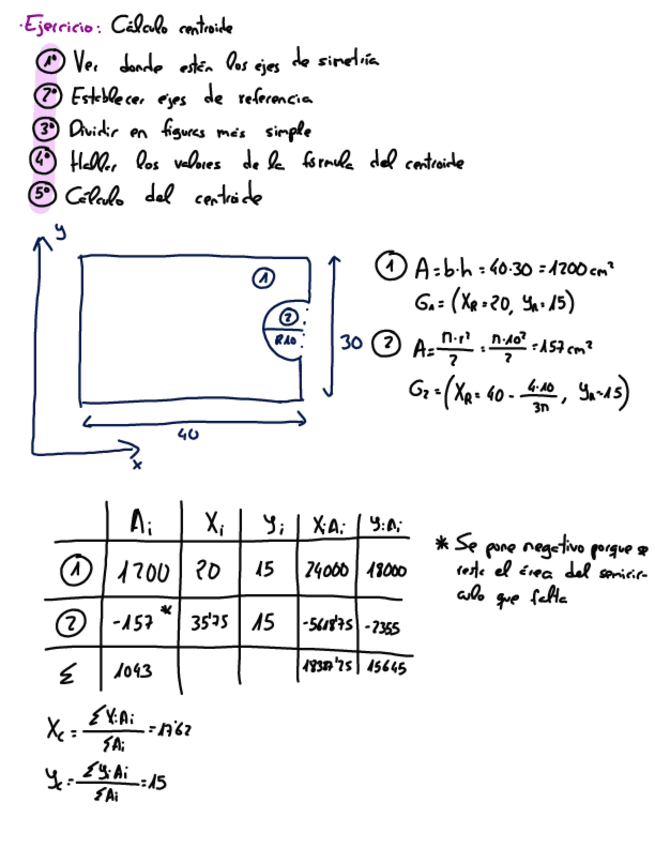 ·Ejercicio: Cálculo centroide
1º Ver donde están los ejes de simetría
2º Establecer ejes de referencia
3º Dividir en figuras más simple
4º Haller los valores de la formula del centroide
5º Cálculo del centroide
y
1
2
R10
30
40
x
1 A = b·h = 40·30 = 1200 cm²
G₁ = (XR = 20, yR = 15)
2 A = π·r²/2 = π·10²/2 = 157 cm²
G₂ = (XR = 40 - 4·10/3π, yR = 15)
Ai Xi yi Xi·Ai yi·Ai
1 1200 20 15 24000 18000
2 -157* 35'75 15 -5618'75 -2355
Σ 1043 15645
* Se pone negativo porque se
resta el área del semicír-
culo que falta
Xc = ΣXi·Ai/ΣAi = 17'62
yc = Σyi·Ai/ΣAi = 15